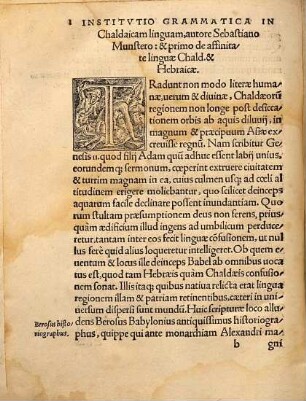 1 INSTITVTIO GRAMMATICA IN
Chaldaicam linguam, autore Sebastiano
Munstero: & primo de affinita⸗
te linguæ Chald. &
Hebraicæ.
TRadunt non modo literæ huma
næ, uerum & diuinæ, Chaldæorũ
regionem non longe post desicca
tionem orbis ab aquis diluuij, in
magnum & præcipuum Asiæ ex⸗
creuisse regnũ. Nam scribitur Ge⸗
nesis 11. quod filij Adam qui adhuc essent labij unius,
eorundemq́; sermonum, cœperint extruere ciuitatem
& turrim magnam in ea, cuius culmen usq; ad cœli al
titudinem erigere moliebantur, quo scilicet deinceps
aquarum facile declinare possent inundantiam. Quo
rum stultam præsumptionem deus non serens, prius⸗
quàm ædificium illud ingens ad umbilicum perduce⸗
retur, tantam inter eos fecit linguæ cõfusionẽ, ut nul
lus ferè quid alius loqueretur intelligeret. Ob quem e⸗
uentum & locus ille deinceps Babel ab omnibus uoca
tus est, quod tam Hebræis quàm Chaldæis confusio⸗
nem sonat. Illis itaq; quibus natiua relicta erat lingua
regionem illam & patriam retinentibus, cæteri in uni⸗
uersum dispersi sunt mundũ. Huic scripturæ loco allu
Berosus histo⸗ dens Berosus Babylonius antiquissimus historiogra⸗
riographus. phus, quippe qui ante monarchiam Alexandri ma⸗
b gni